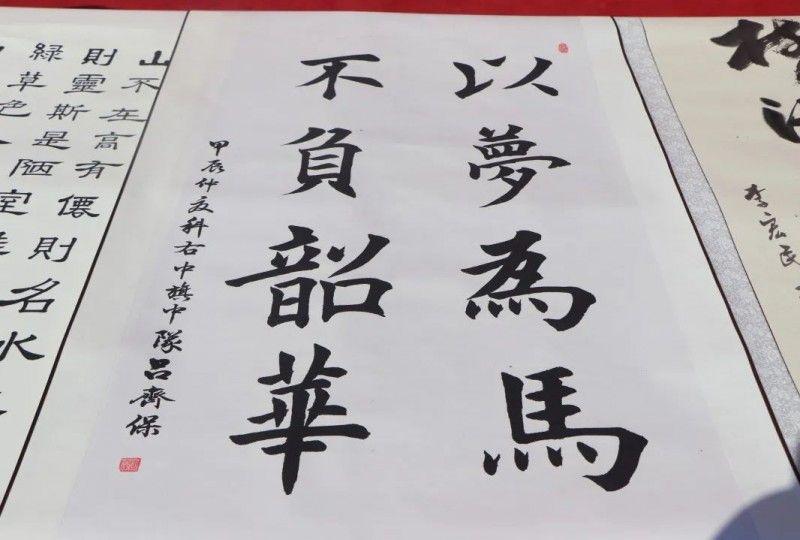 以夢為馬
不負韶華
甲辰仲夏科右中旗中隊呂齊保
山不在高有僊則名水
則靈斯是陋室
綠草色